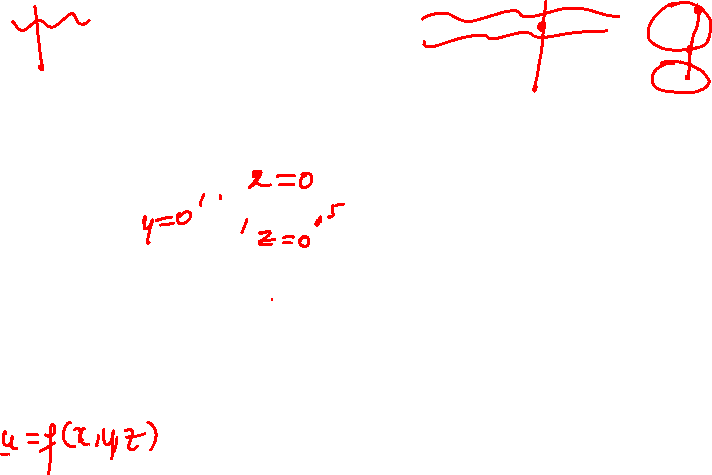 x=0
y=0
z=0
u=f(x,y,z)